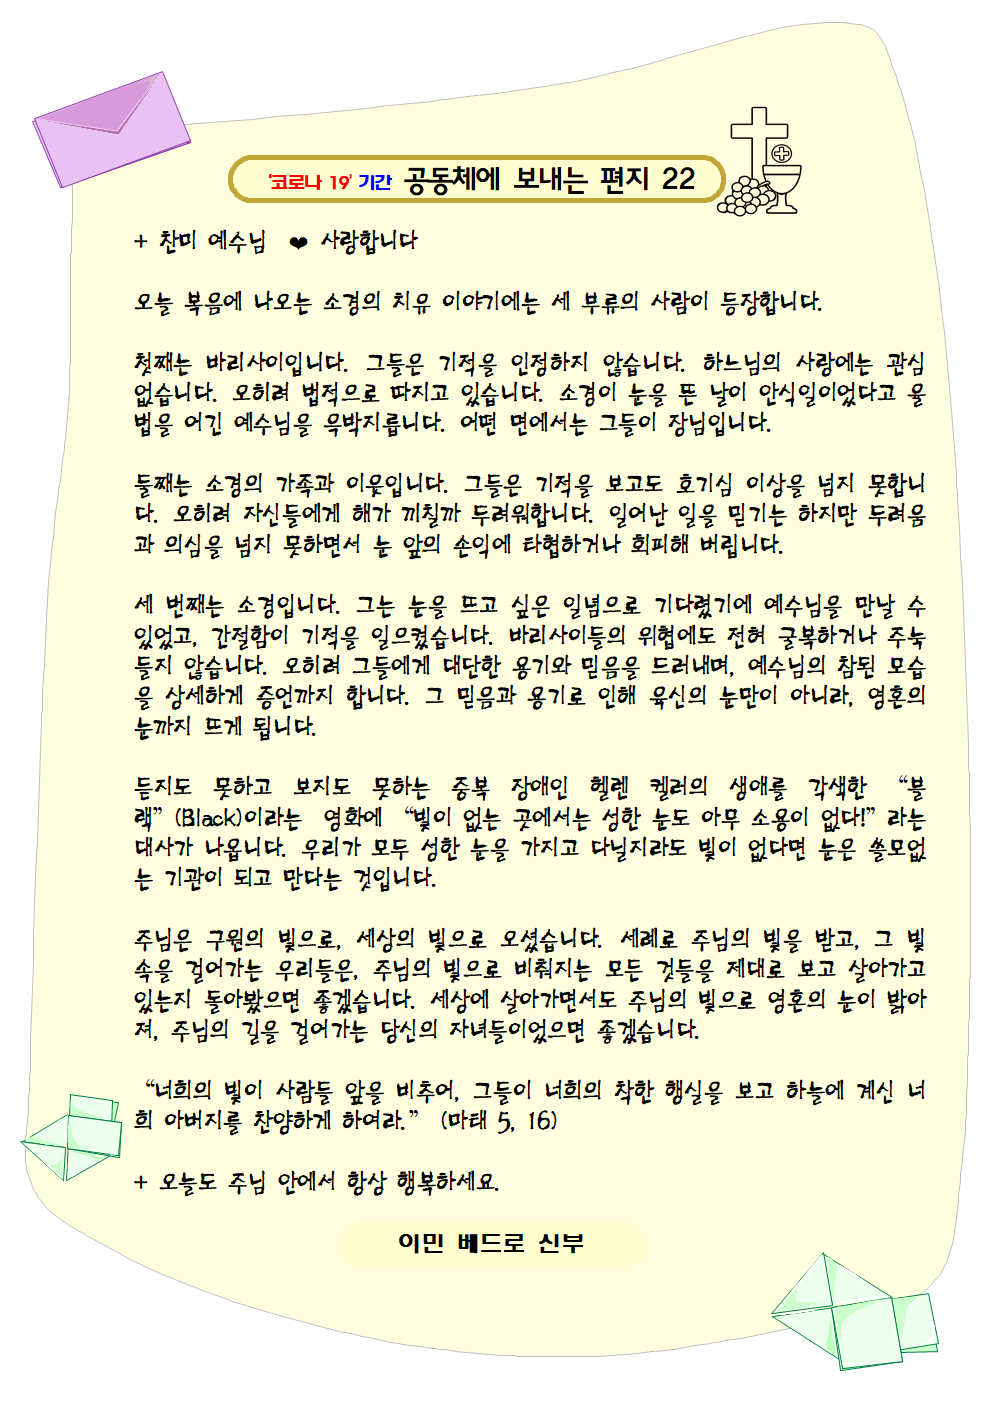 '코로나 19' 기간 공동체에 보내는 편지 22
+ 찬미 예수님 ❤ 사랑합니다
오늘 복음에 나오는 소경의 치유 이야기에는 세 부류의 사람이 등장합니다.
첫째는 바리사이입니다. 그들은 기적을 인정하지 않습니다. 하느님의 사랑에는 관심
없습니다. 오히려 법적으로 따지고 있습니다. 소경이 눈을 뜬 날이 안식일이었다고 율
법을 어긴 예수님을 윽박지릅니다. 어떤 면에서는 그들이 장님입니다.
둘째는 소경의 가족과 이웃입니다. 그들은 기적을 보고도 호기심 이상을 넘지 못합니
다. 오히려 자신들에게 해가 끼칠까 두려워합니다. 일어난 일을 믿기는 하지만 두려움
과 의심을 넘지 못하면서 눈 앞의 손익에 타협하거나 회피해 버립니다.
세 번째는 소경입니다. 그는 눈을 뜨고 싶은 일념으로 기다렸기에 예수님을 만날 수
있었고, 간절함이 기적을 일으켰습니다. 바리사이들의 위협에도 전혀 굴복하거나 주눅
들지 않습니다. 오히려 그들에게 대단한 용기와 믿음을 드러내며, 예수님의 참된 모습
을 상세하게 증언까지 합니다. 그 믿음과 용기로 인해 육신의 눈만이 아니라, 영혼의
눈까지 뜨게 됩니다.
듣지도 못하고 보지도 못하는 중복 장애인 헬렌 켈러의 생애를 각색한 “블
랙”(Black)이라는 영화에 “빛이 없는 곳에서는 성한 눈도 아무 소용이 없다!” 라는
대사가 나옵니다. 우리가 모두 성한 눈을 가지고 다닐지라도 빛이 없다면 눈은 쓸모없
는 기관이 되고 만다는 것입니다.
주님은 구원의 빛으로, 세상의 빛으로 오셨습니다. 세례로 주님의 빛을 받고, 그 빛
속을 걸어가는 우리들은, 주님의 빛으로 비춰지는 모든 것들을 제대로 보고 살아가고
있는지 돌아봤으면 좋겠습니다. 세상에 살아가면서도 주님의 빛으로 영혼의 눈이 밝아
져, 주님의 길을 걸어가는 당신의 자녀들이었으면 좋겠습니다.
“너희의 빛이 사람들 앞을 비추어, 그들이 너희의 착한 행실을 보고 하늘에 계신 너
희 아버지를 찬양하게 하여라.” (마태 5, 16)
+ 오늘도 주님 안에서 항상 행복하세요.
이민 베드로 신부